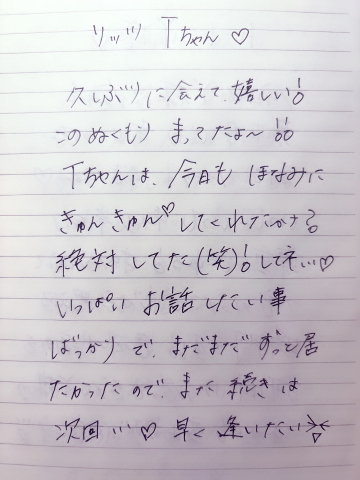 リッツ Tちゃん♡
久しぶりに会えて嬉しい!!
このぬくもり まってたよ〜!!
Tちゃんは、今日も ほなみに
きゅんきゅん♡してくれたかナ?
絶対してた(笑)!してネ…♡
いっぱい お話したい事
ばっかりで、まだまだ ずっと居
たかったので、また 続きは
次回…♡ 早く 逢いたい